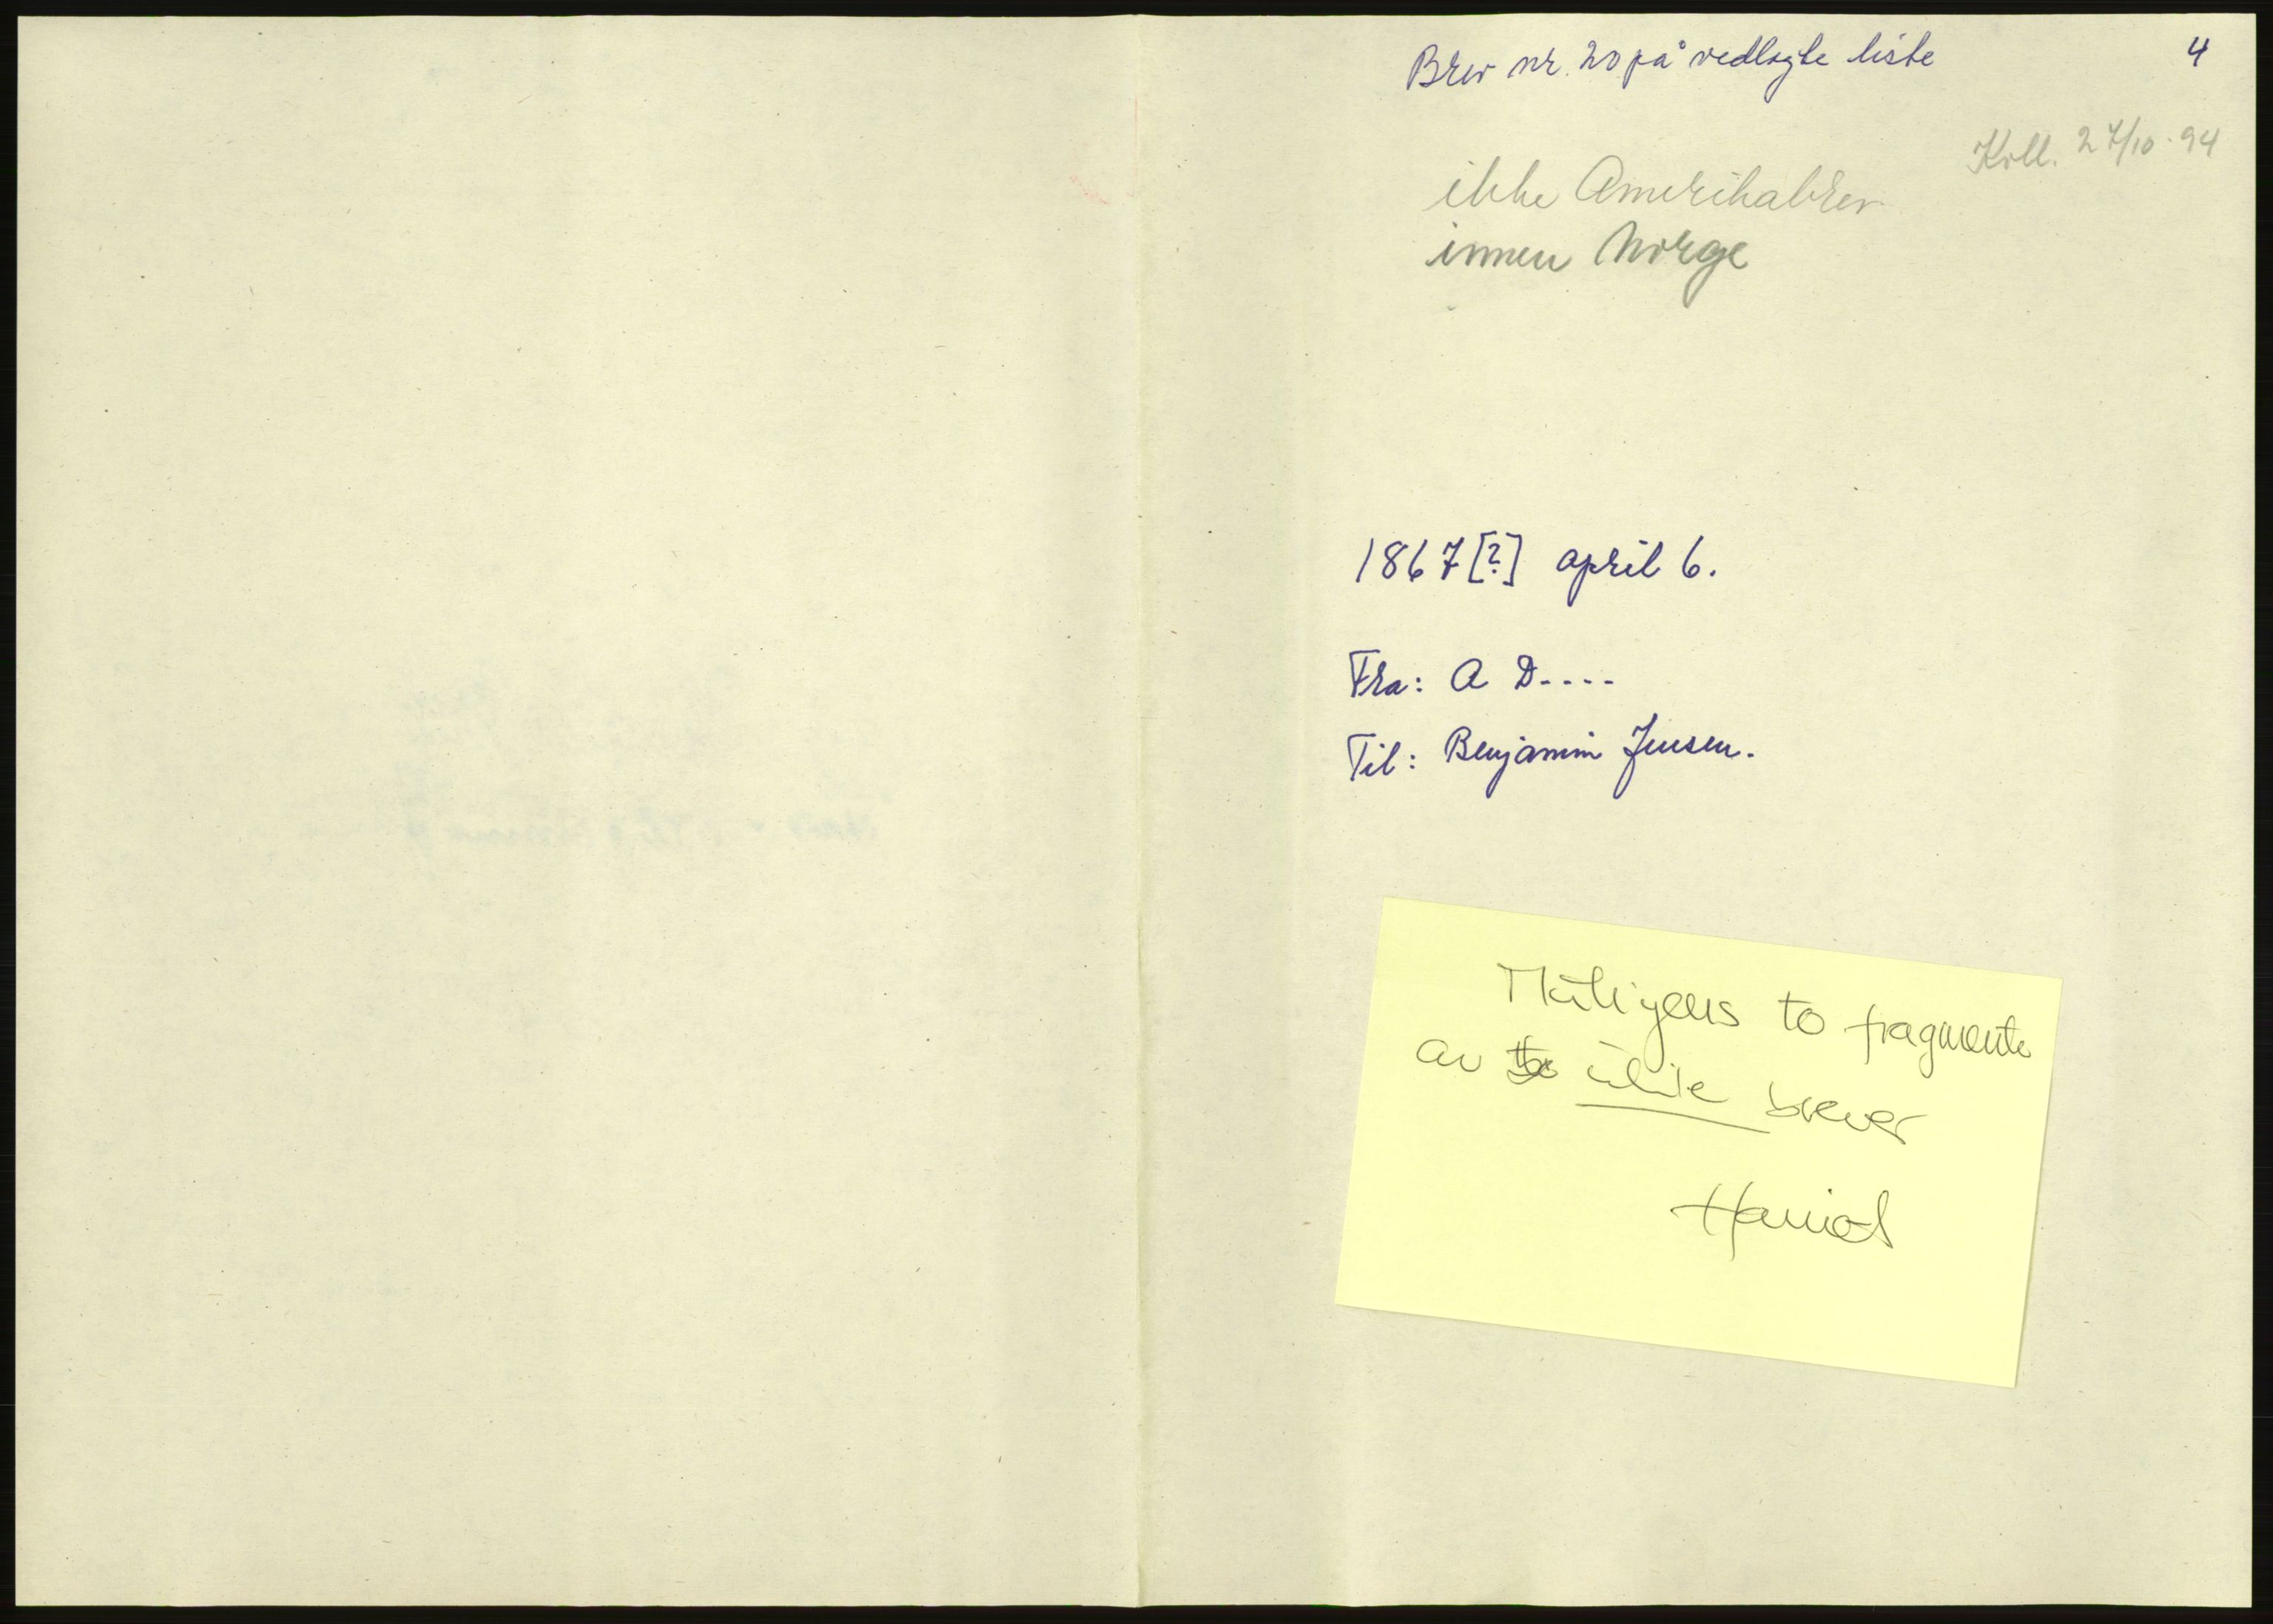 Brev nr. 20 på vedlagte liste
4
Koll. 27/10-94
ikke Amerikabrev
innen Norge
1867[?] april 6.
Fra: A D----
Til: Benjamin Jensen.
to fragmenter
av to ulike brever